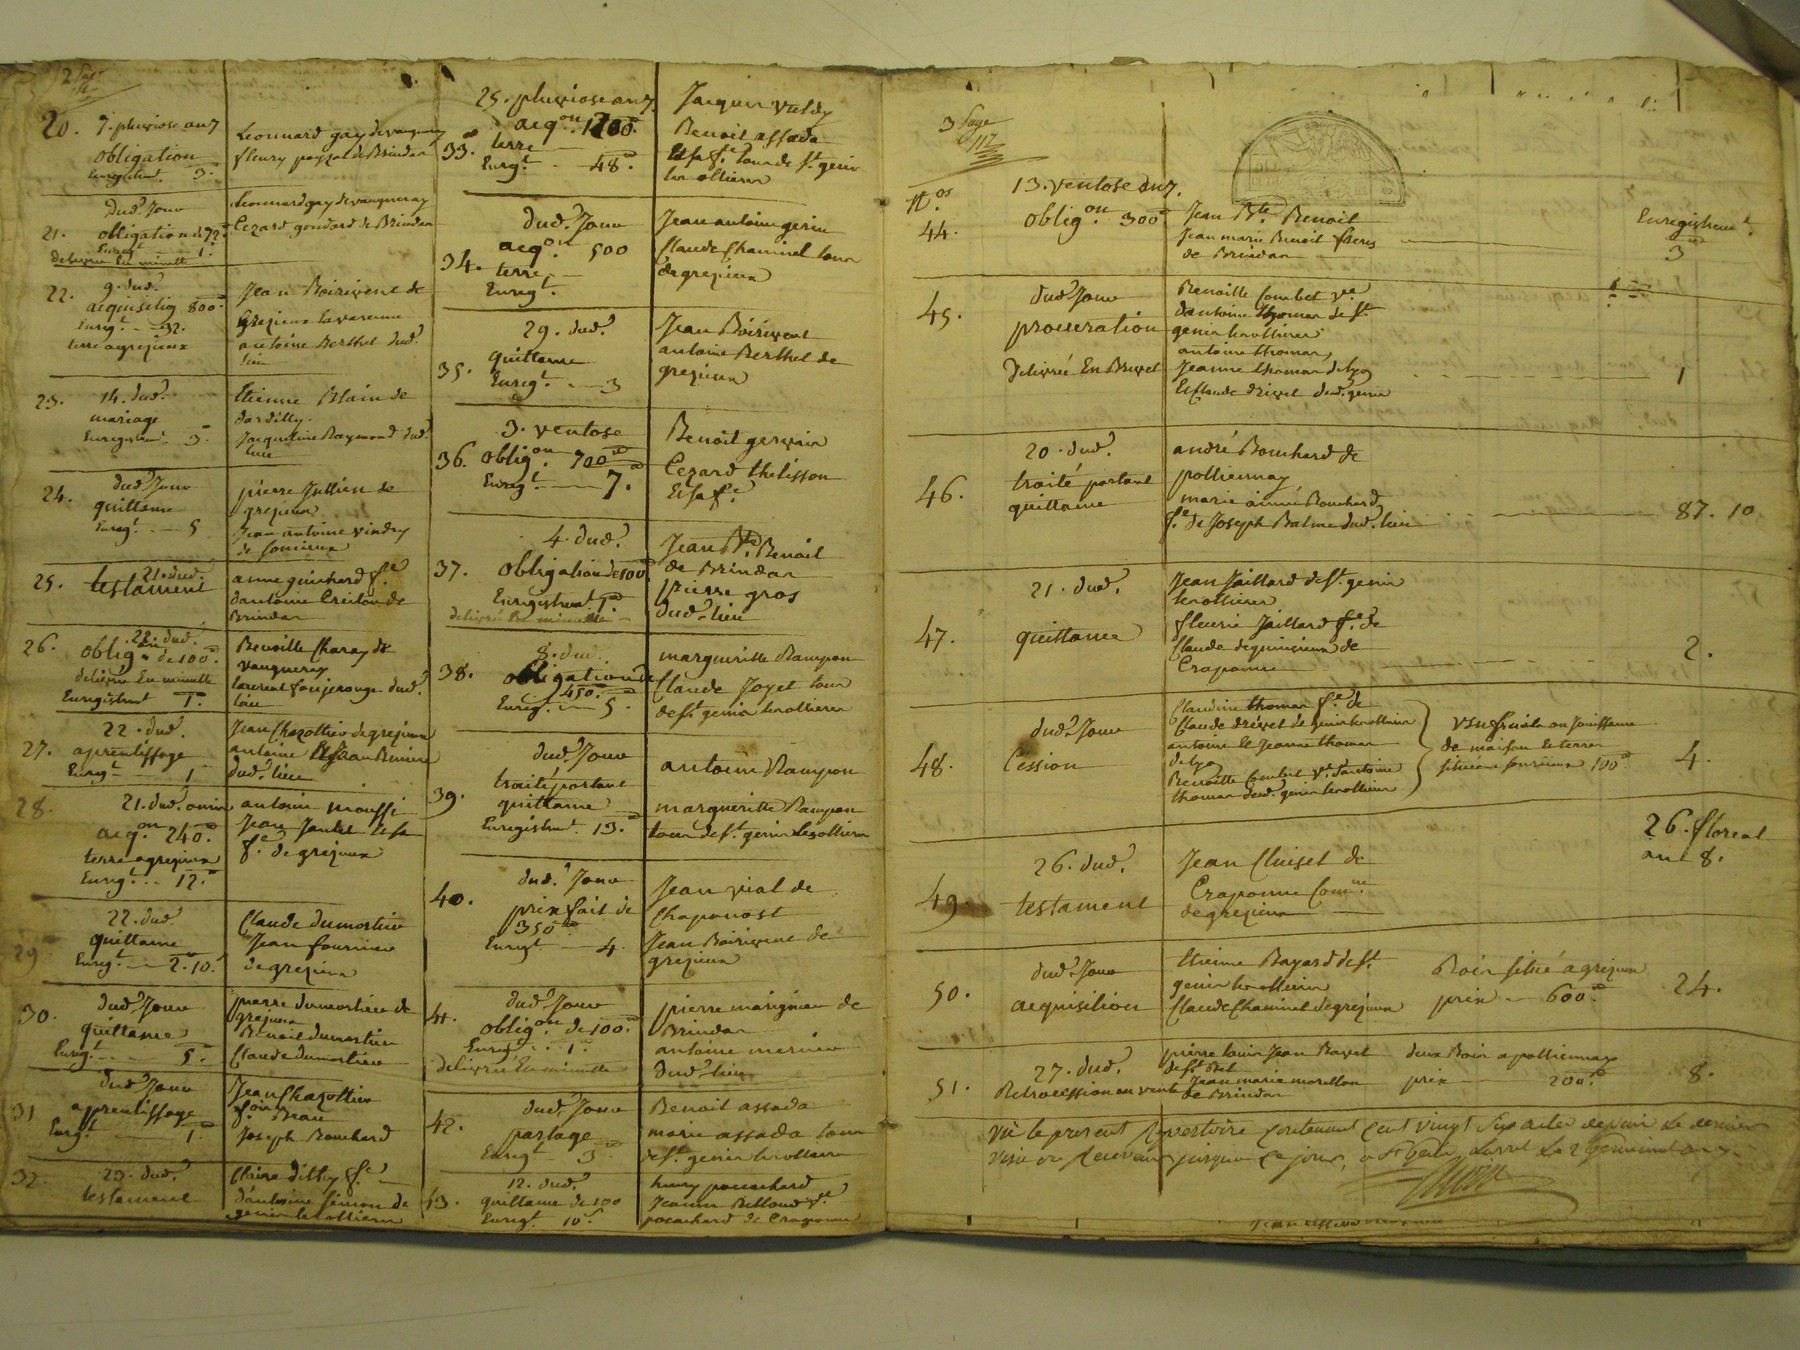 2 page
20. 7. pluviose an 7
obligation
Enregistrmt. 3.
Leonnard gay de vaugneray
fleury payzat de Brindas
21. dud. Jour
obligation de 72
Enregt. 1.
délivrée En minutte
Leonnard gay de vaugneray
Cezard gondard de Brindas
22. 9. dud.
acquisition 800
Enregt. 32.
terre a grezieux
Jean Boirivent de
Grezieux La varenne
antoine Berthet dud.
lieu
23. 14. dud.
mariage
Enregistrmt. 3
Etienne Blain de
dardilly
Jacqueline Raymond dud.
lieu
24. dud. Jour
quittance
Enregt. 5
pierre Jullien de
grezieux
Jean antoine vindry
de soucieux
25. 21. dud.
testament
anne guichard fe.
dantoine Creiton de
Brindas
26. 22. dud.
oblig.on de 100
délivrée En minutte
Enregistrmt 1.
Benoitte Charay de
vaugneray
Laurent foujerouge dud.
lieu
27. 22. dud.
aprentissage
Enregt. 1
Jean Chazottier de grezieux
antoine Et Jean Brunier
dud. lieu
28. 21. dud. omis
acq.on 240.
terre a grezieux
Enregt. 12.
antoine moussi
Jean Jantet Et sa
fe. de grezieux
29. 22. dud.
quittance
Enregt. 2. 10.
Claude dumortier
Jean fournier
de grezieux
30. dud. Jour
quittance
Enregt. 5.
pierre dumortier de
grezieux
Benoit dumortier
Claude dumortier
31 dud. Jour
aprentissage
Enregt. 1.
Jean Chazottier
Joseph Bouchard
32. 23. dud.
testament
Claire dittry fe.
dantoine Simon de
genis les ollieres
33. 25. pluviose an 7.
acq.on 1200.
terre
Enregt. 48.
Jacques valdy
Benoit assada
Et sa fe. tous de st. genis
les ollieres
34. dud. Jour
acq.on 500
terre
Enregt.
Jean antoine gerin
Claude Chaminel tous
de grezieux
35. 29. dud.
quittance
Enregt. 3
Jean Boirivent
antoine Berthet de
grezieux
36. 3. ventose
oblig.on 700
Enregt. 7.
Benoit gervais
Cezard thelisson
Et sa fe.
37. 4. dud.
obligation de 100
Enregistrmt 1.
délivrée En minutte
Jean Bte. Benoit
de Brindas
pierre gros
dud. lieu
38. 8. dud.
obligation de
450.
Enregt. 5.
margueritte Rampon
Claude Joyet tous
de st genis les ollieres
39. dud. Jour
traité portant
quittance
Enregistrmt. 13.
antoine Rampon
margueritte Rampon
tous de st. genis les ollieres
40. dud. Jour
prix fait de
350
Enregt 4.
Jean vial de
Chaponost
Jean Boirivent de
grezieux
41. dud. Jour
oblig.on de 100.
Enregt. 1.
délivrée En minutte
pierre marignier de
Brindas
antoine mercier
dud. lieu
42. dud. Jour
partage
Enregt 3.
Benoit assada
marie assada tous
de st. genis les ollieres
43. 12. dud.
quittance de 100
Enregt. 10
henry pocachard
Jeanne Billoud ve.
pocachard de Craponne
3 page
Nos 13. ventose an 7.
44. oblig.on 300
Jean Bte. Benoit
Jean marie Benoit freres
de Brindas
Enregistremt.
3
45. dud. Jour
procuration
Delivrée En Brevet
Benoitte Combet ve.
dantoine thomas de st.
genis les ollieres
antoine thomas,
Jeanne thomas de lyon
Et Claude drivet dud. genis
1
46. 20. dud.
traité portant
quittance
andré Bouchard de
pollionnay
marie aimé Bouchard
fe. de Joseph Balme dud. lieu
87. 10
47. 21. dud.
quittance
Jean Jaillard de st. genis
les ollieres
fleurie Jaillard fe. de
Claude dequinsieux de
Craponne
2.
48. dud. Jour
Cession
Claudine thomas fe. de
Claude drivet de genis les ollieres
antoine Et Jeanne thomas
de lyon
Benoitte Combet ve. dantoine
thomas dud. genis les ollieres
usufruit ou Jouissance
de maison Et terres
situés a soucieux 100
4.
49. 26. dud.
testament
Jean Cluiset de
Craponne Comune
de grezieux
26. floreal
an 8.
50. dud. Jour
acquisition
Etienne Bayard de st.
genis les ollieres
Claude Chaminel de grezieux
Bois situé a grezieux
prix 600.
24.
51. 27. dud.
Retrocession ou vente
pierre louis Jean Bayet
de st Bel
Jean marie morellon
de Brindas
deux Bois a pollionnay
prix 200.
8.
Vû le present Repertoire contenant Cent vingt Six actes depuis Le dernier
visa du Receveur jusqu'a ce jour, a